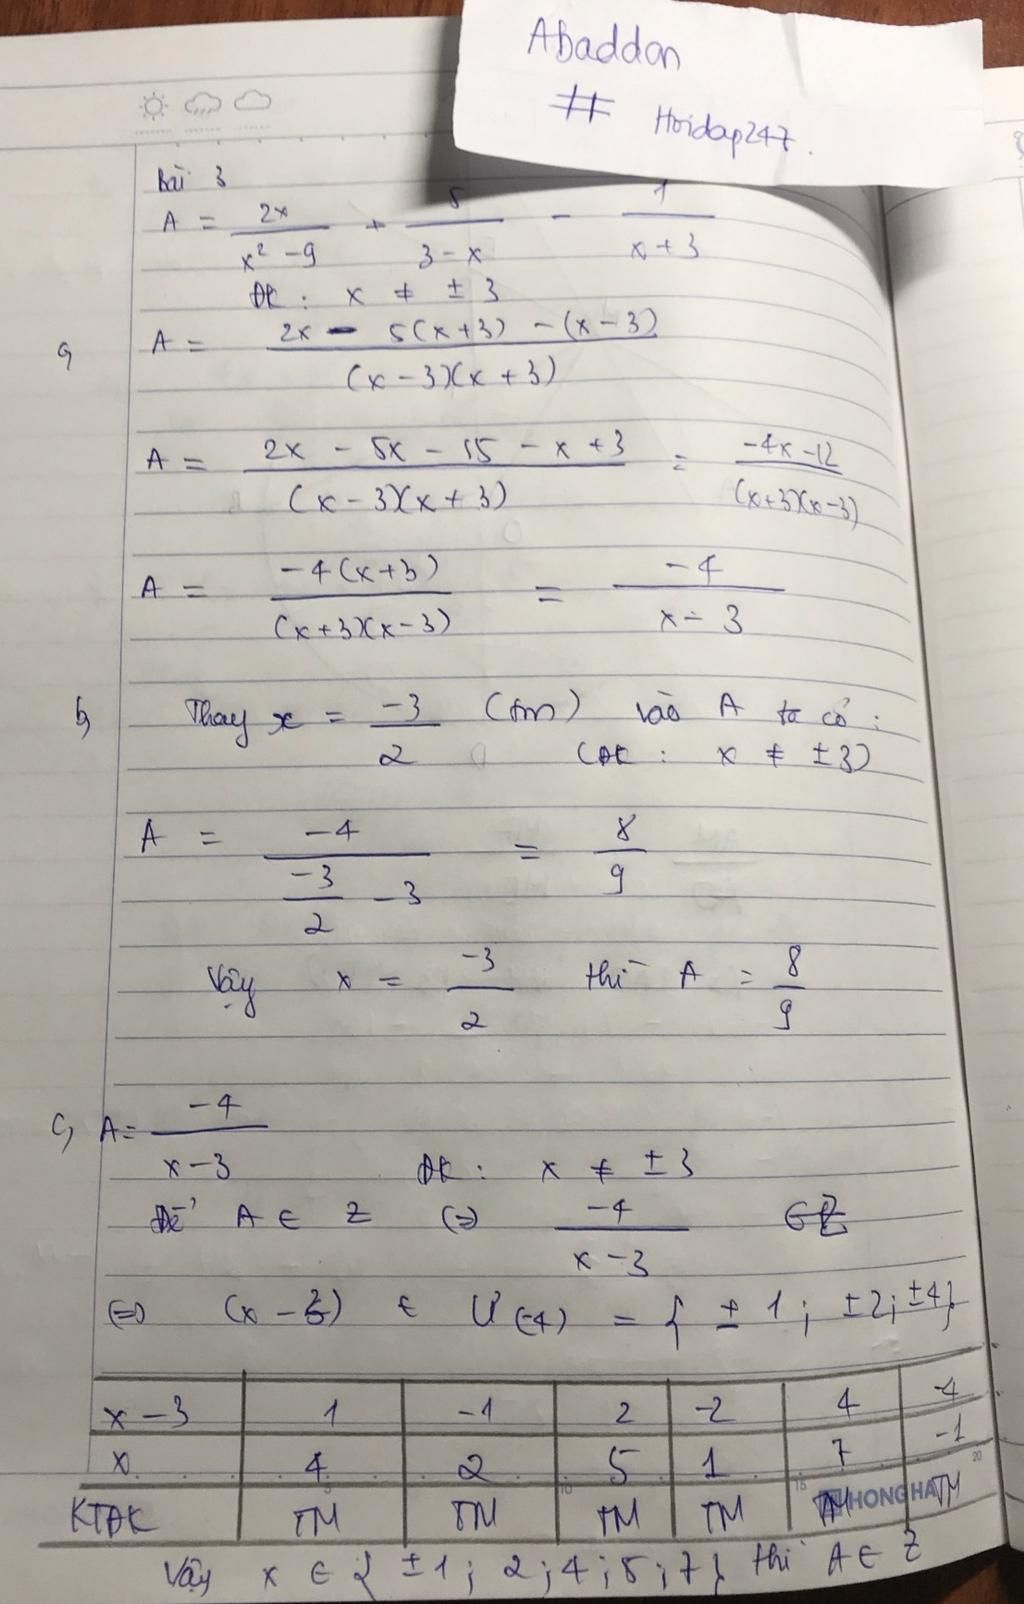 Abaddon
# Hoidap247.
Bài 3
A = 2x / (x² - 9) + 5 / (3 - x) - 1 / (x + 3)
ĐK : x ≠ ± 3
a, A = (2x - 5(x+3) - (x-3)) / ((x-3)(x+3))
A = (2x - 5x - 15 - x + 3) / ((x-3)(x+3)) = (-4x - 12) / ((x+3)(x-3))
A = -4(x+3) / ((x+3)(x-3)) = -4 / (x - 3)
b, Thay x = -3/2 (tm) vào A ta có :
(ĐK : x ≠ ±3)
A = -4 / (-3/2 - 3) = 8/9
Vậy x = -3/2 thì A = 8/9
c, A = -4 / (x-3) ĐK : x ≠ ± 3
Để A ∈ Z (=) -4 / (x-3) ∈ Z
(=) (x - 3) ∈ Ư(-4) = { ± 1 ; ±2 ; ±4 }
x - 3 1 -1 2 -2 4 -4
x 4 2 5 1 7 -1
KTĐK TM TM TM TM TM TM
HONG HA
Vậy x ∈ { ±1 ; 2 ; 4 ; 5 ; 7 } thì A ∈ Z